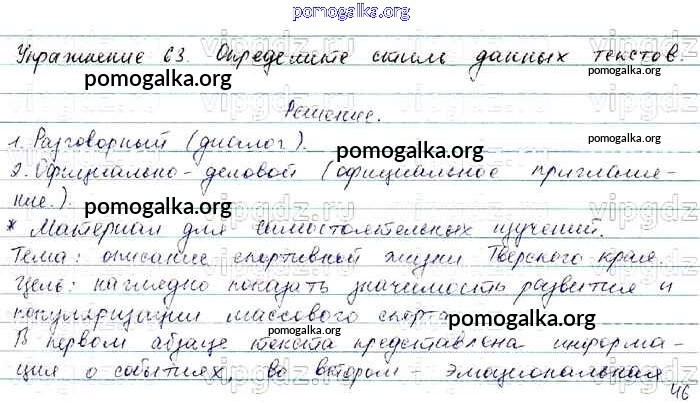 pomogalka.org
Упражнение 63. Определите стиль данных текстов.
pomogalka.org
pomogalka.org
Решение.
1. Разговорный (диалог).
pomogalka.org
2. Официально-деловой (официальное приглаше-
ние.).
pomogalka.org
* Материал для самостоятельных изучений.
pomogalka.org
Тема: описание спортивной жизни Тверского края.
Цель: наглядно показать значимость развития и
популяризации массового спорта
pomogalka.org
В первом абзаце текста представлена информа-
pomogalka.org
ция о событиях, во втором - эмоциональная
46